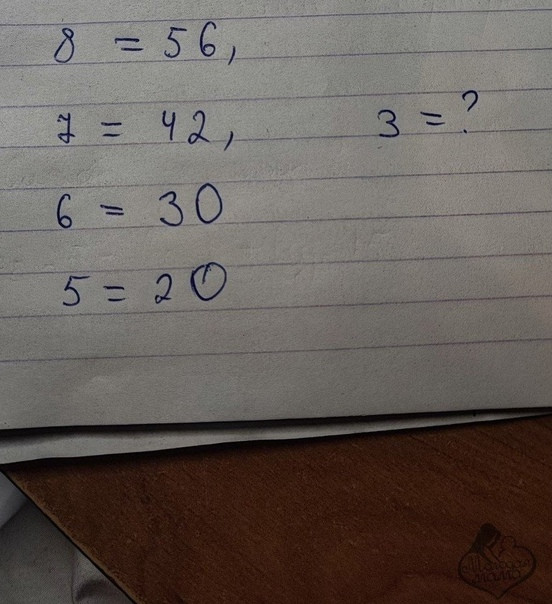 8 = 56,
7 = 42,
3 = ?
6 = 30
5 = 20